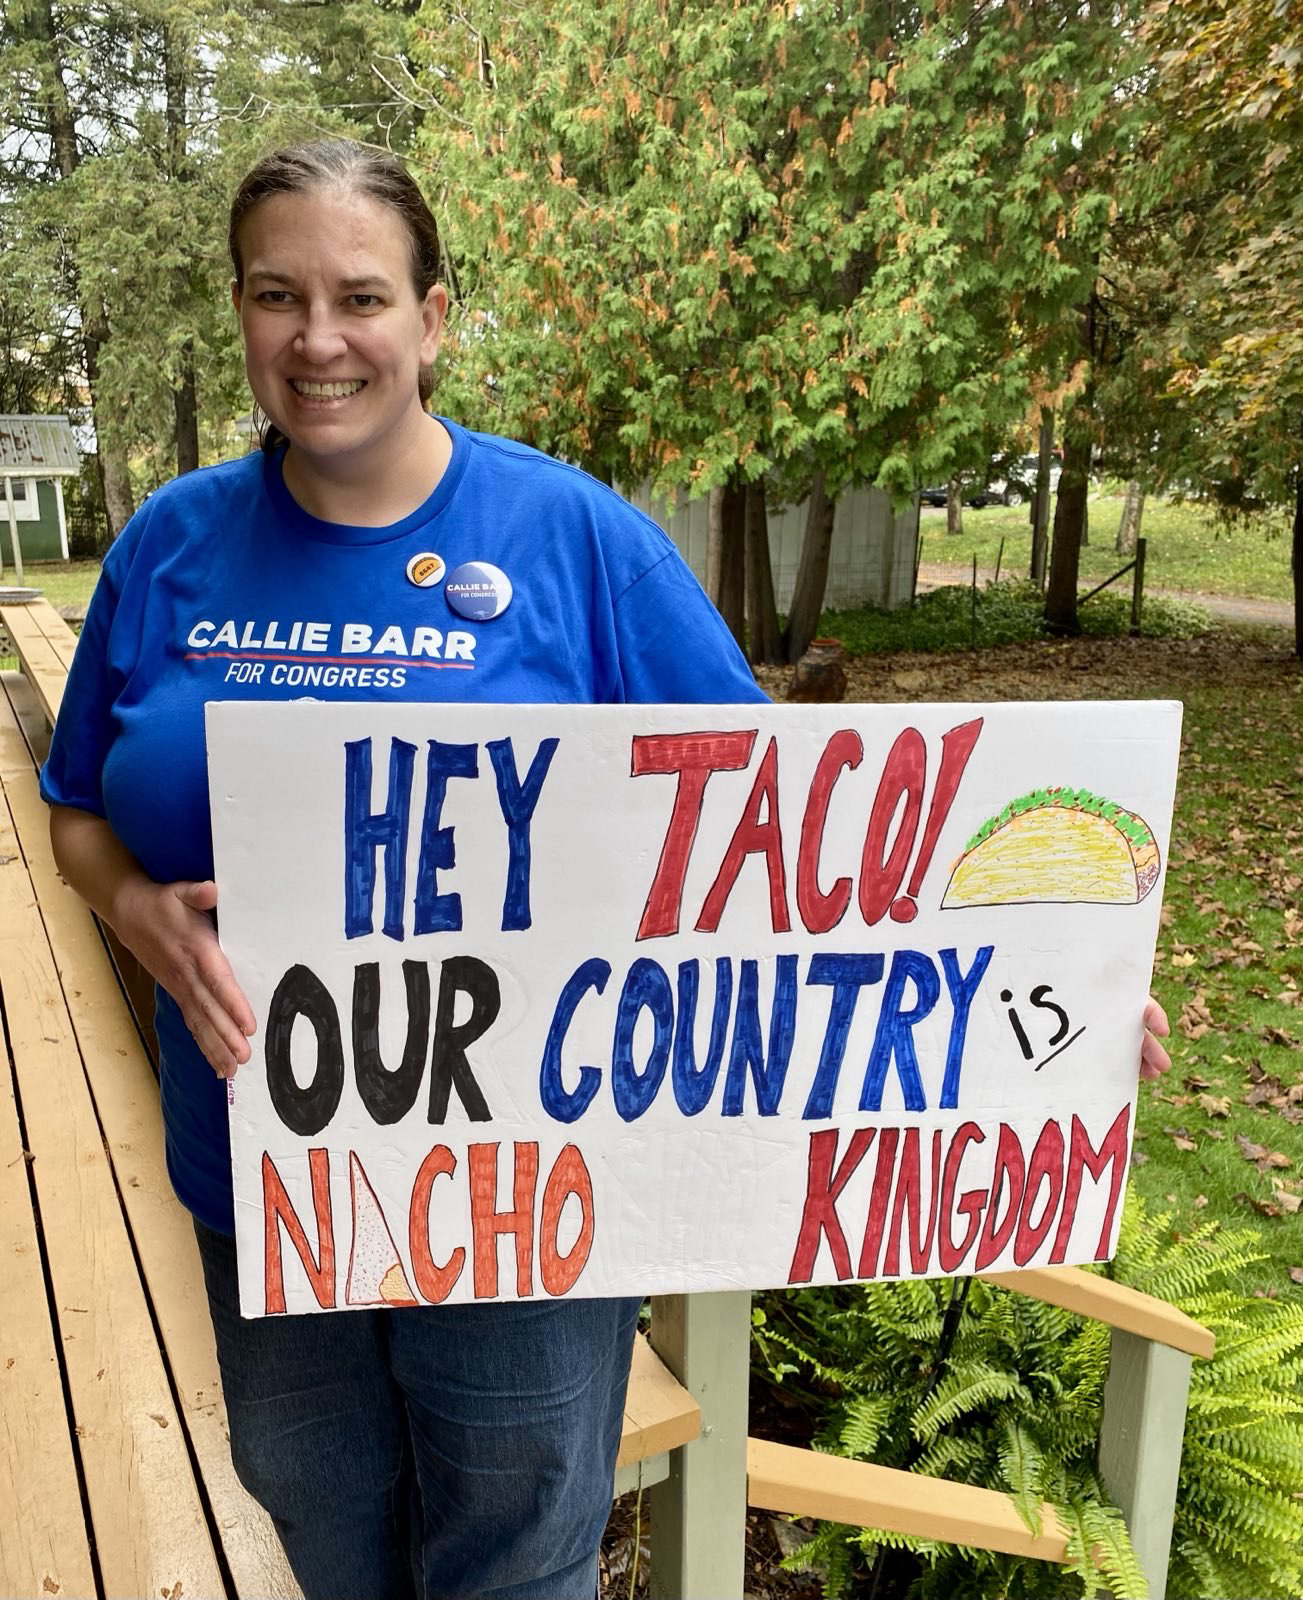 8647
CALLIE BARR
FOR CONGRESS
CALLIE BARR
FOR CONGRESS
HEY TACO!
OUR COUNTRY is
NACHO KINGDOM